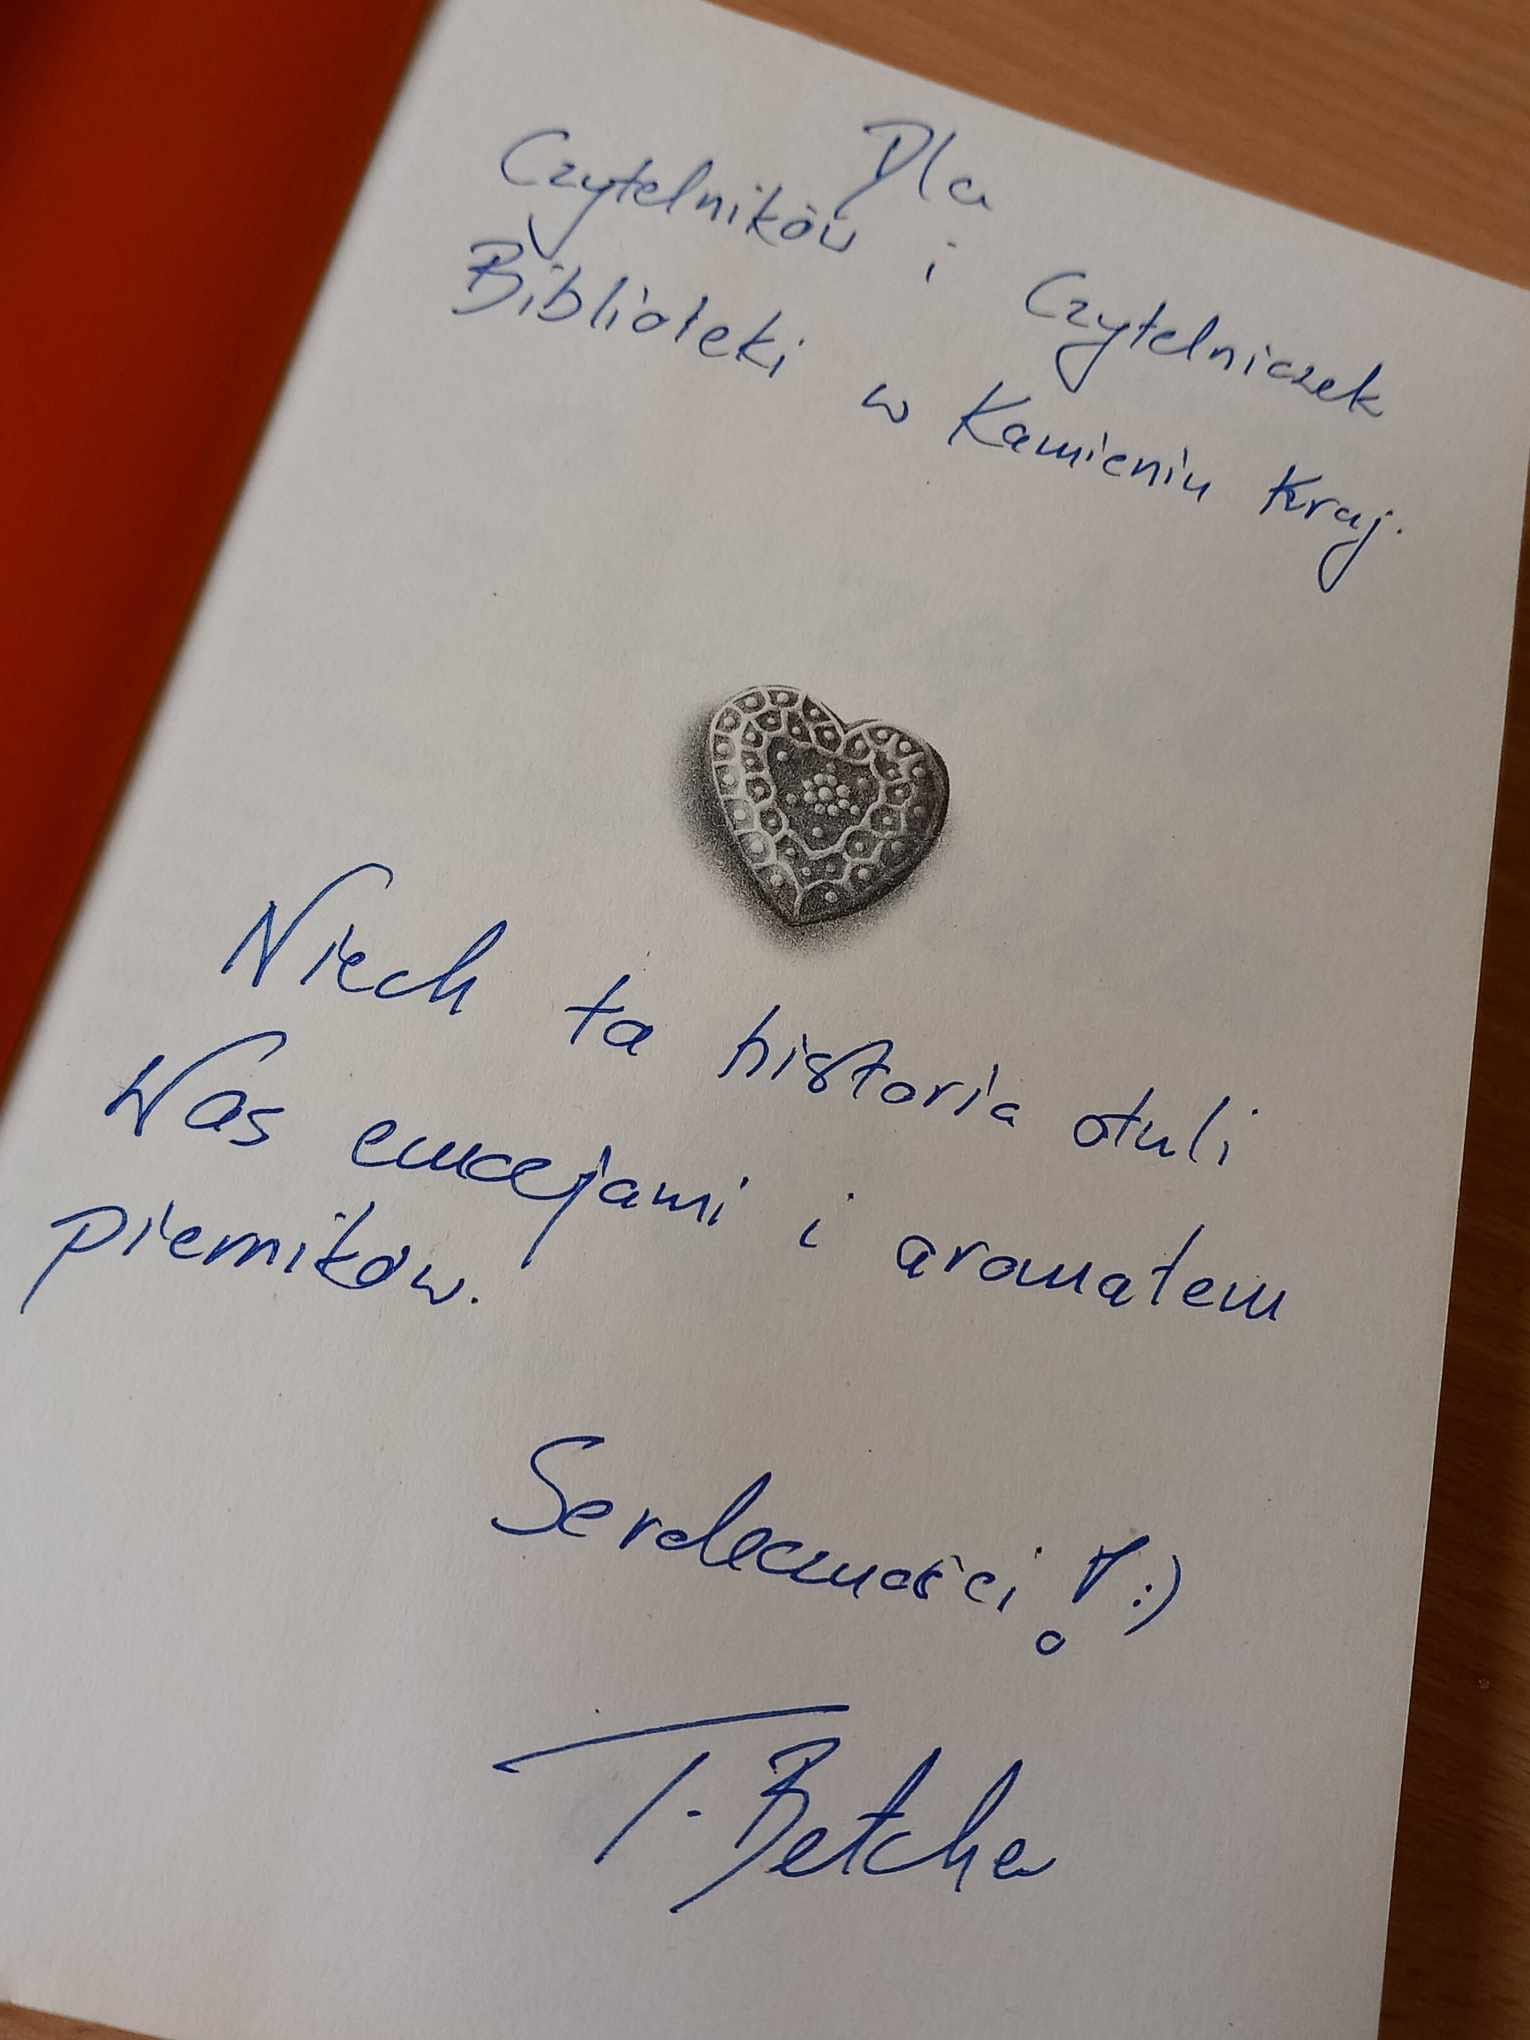 Dla
Czytelników i Czytelniczek
Biblioteki w Kamieniu Kraj.
Niech ta historia otuli
Was emocjami i aromatem
pierników.
Serdeczności! :)
T. Betcher